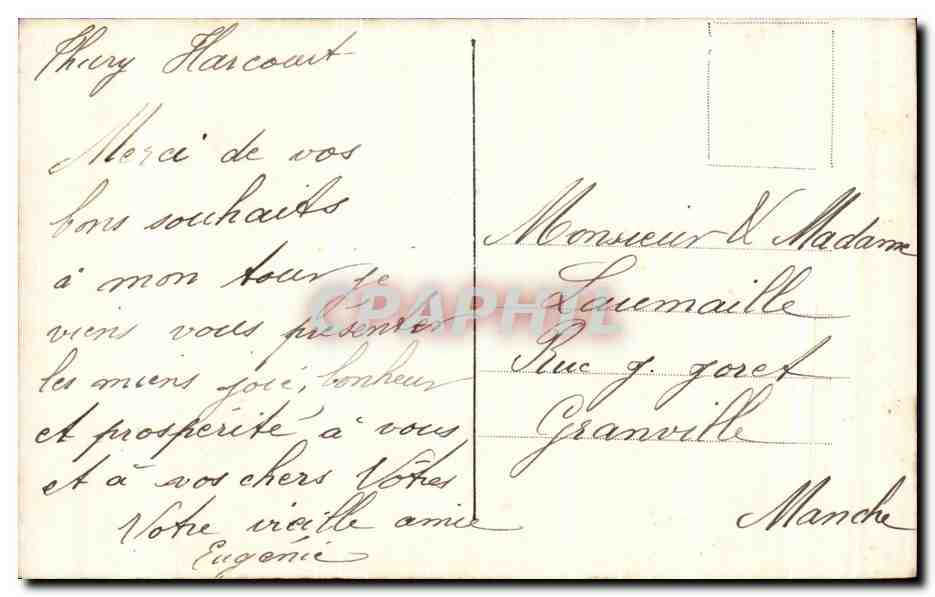 Thury Harcourt
Merci de vos
bons souhaits
à mon tour je
viens vous présenter
les miens joie, bonheur
et prospérité à vous
et à vos chers Vôtres
Votre vieille amie
Eugénie
Monsieur & Madame
Laumaille
Rue g. goret
Granville
Manche
CPAPHIL